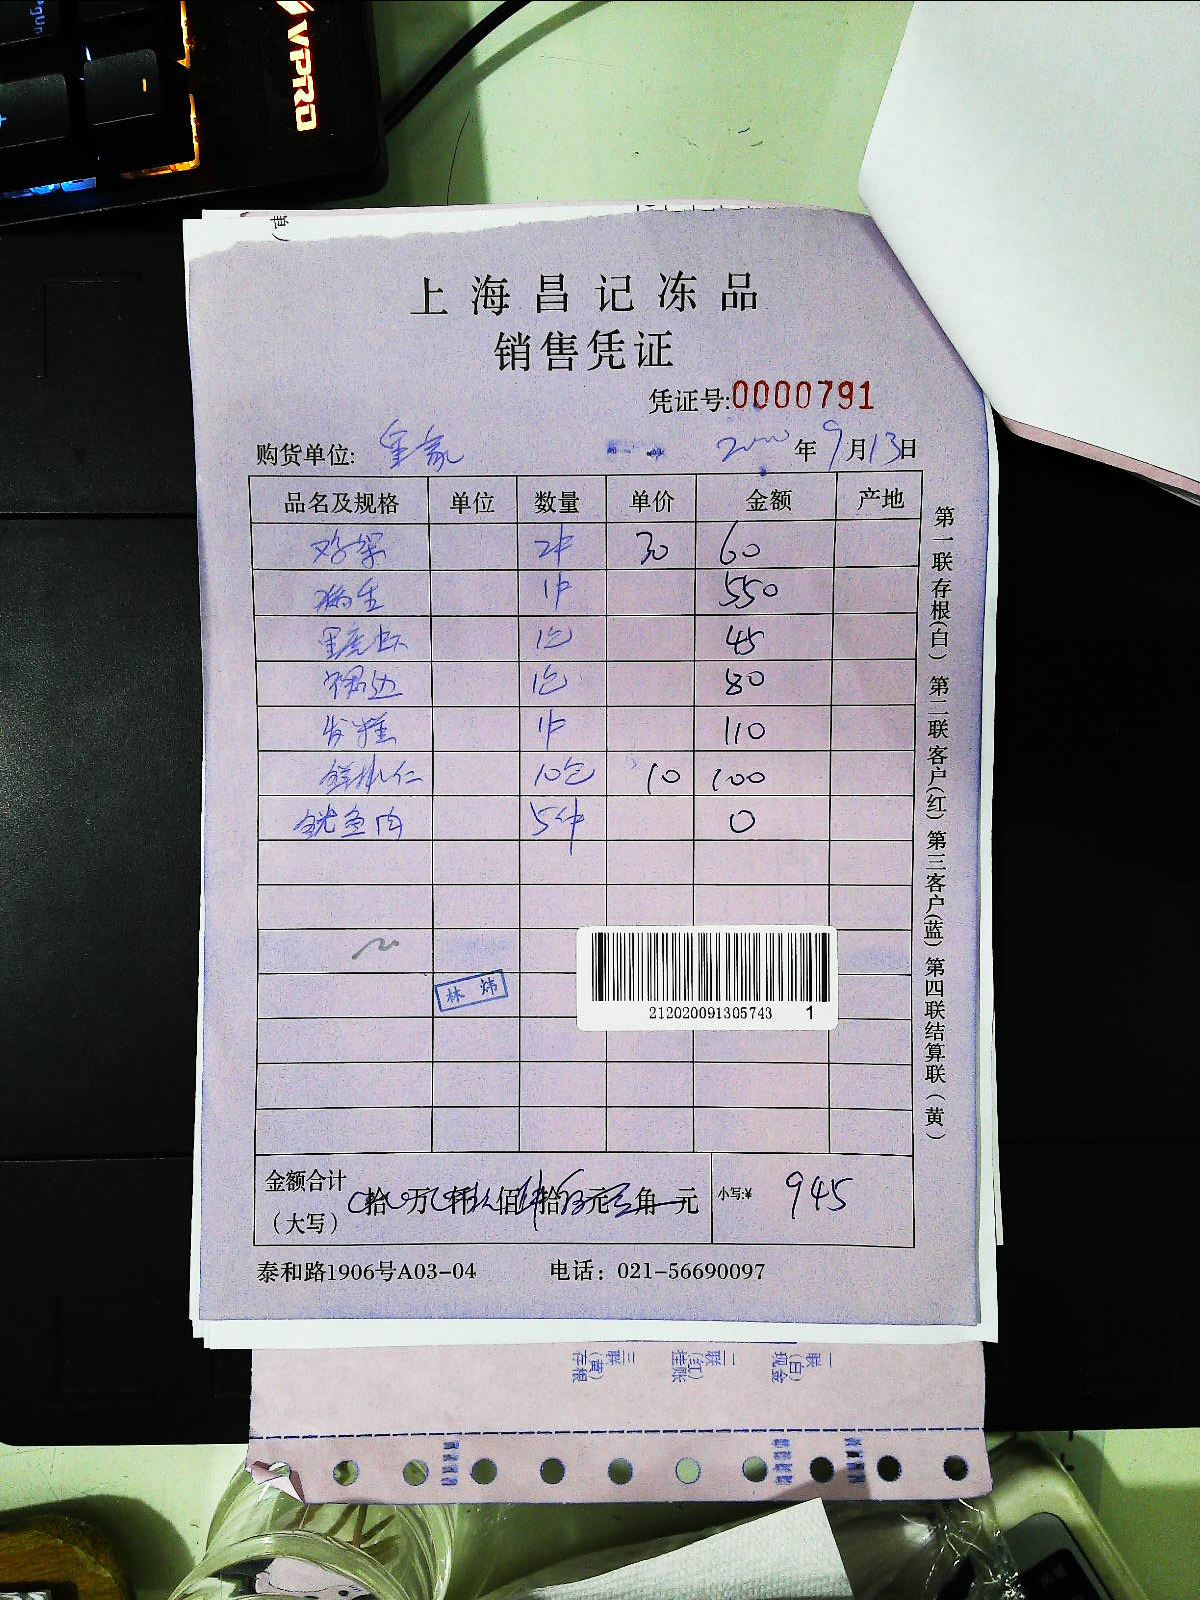 VPRO
PgUn
单）
上海昌记冻品
销售凭证
凭证号:0000791
购货单位: 年9月13日
品名及规格 单位 数量 单价 金额 产地
鸡架 2件 30 60
1件 550
1包 45
裙边 1包 80
发糕 1件 110
10包 10 100
鱿鱼肉 5件 0
林炜
212020091305743 1
金额合计（大写） 拾 万 仟 玖佰 肆拾 伍元 角 元 小写:¥ 945
泰和路1906号A03-04 电话：021-56690097
第一联存根(白) 第二联客户(红) 第三客户(蓝) 第四联结算联(黄)
一联(白)现金
二联(红)挂账
三联(黄)存根